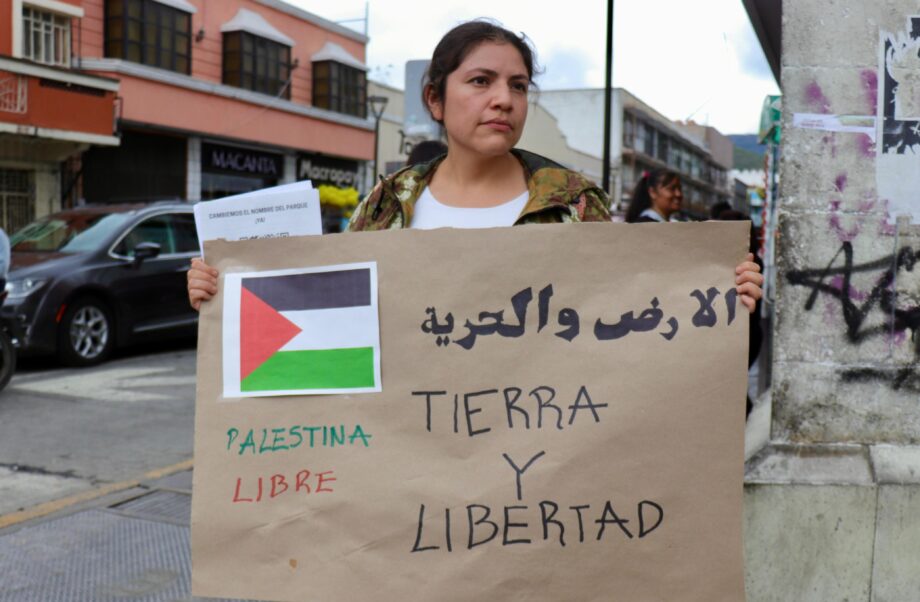 MACANTA
CAMBIEMOS EL NOMBRE DEL PARQUE
¡YA!
الارض والحرية
TIERRA
Y
LIBERTAD
PALESTINA
LIBRE